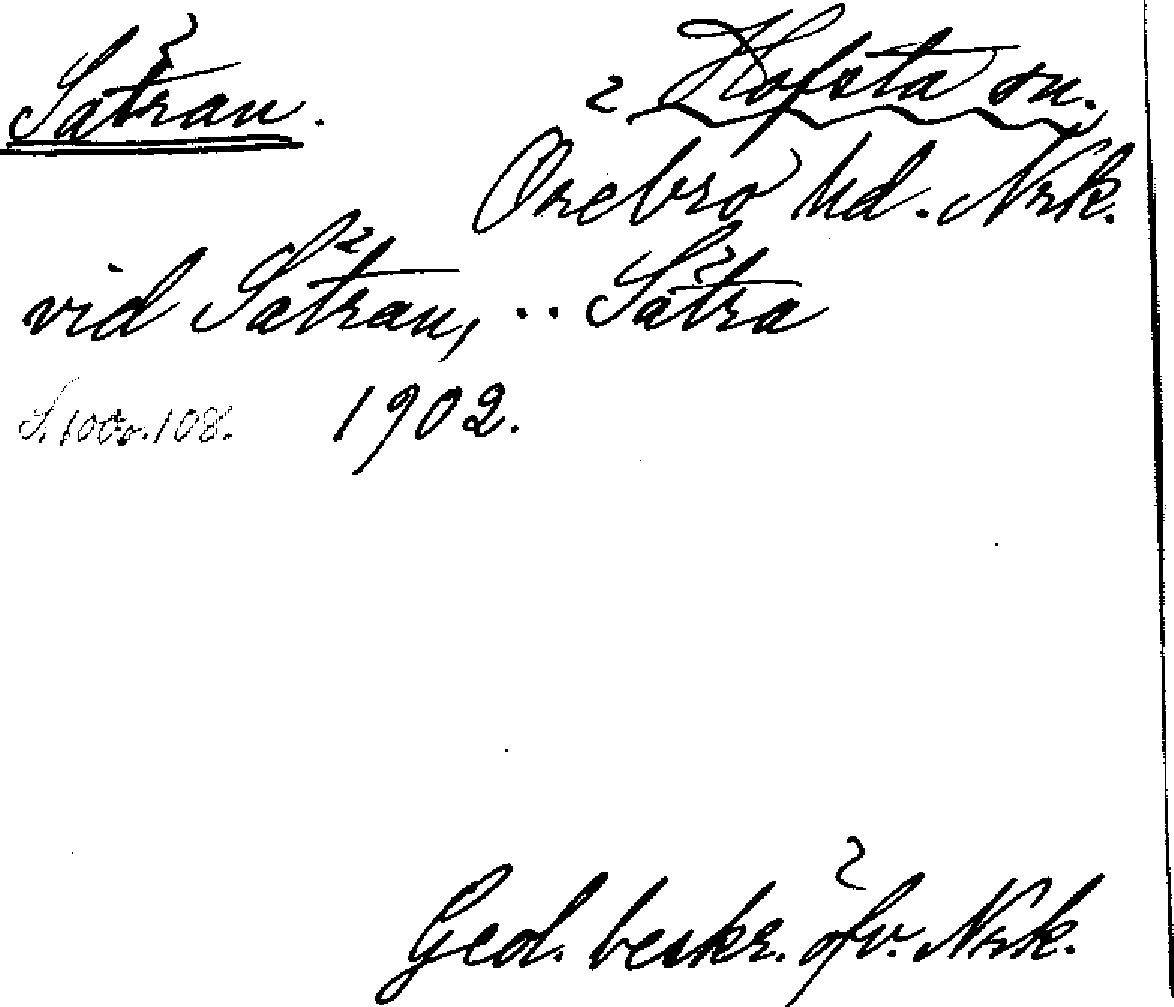 Sätran. 2 Hofsta sn.
Örebro hd. Nrk.
vid Sätran, .. Sätra
S. 100 o. 108. 1902.
Geol. beskr. öfv. Nrk.